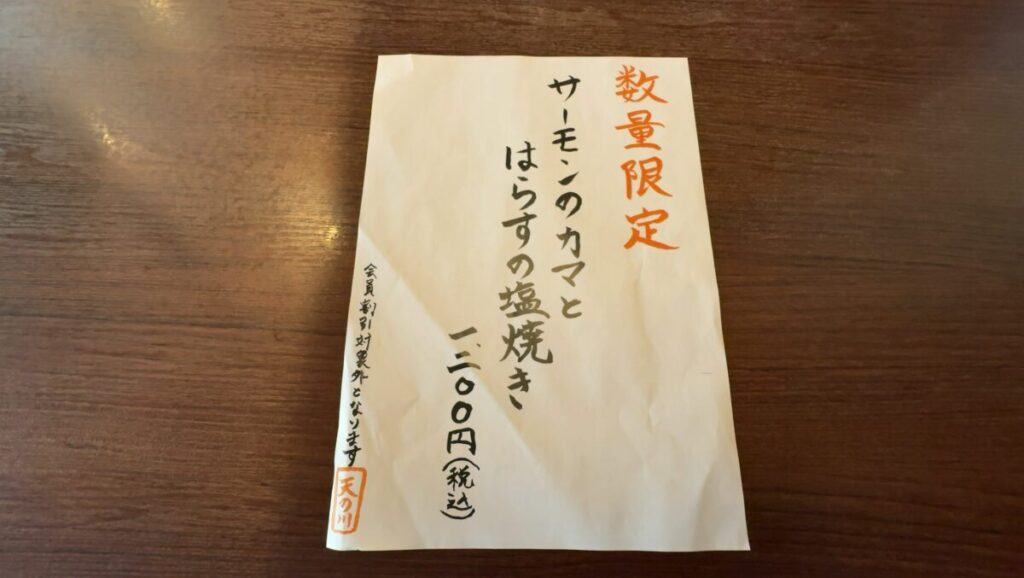 数量限定
サーモンのカマと
はらすの塩焼き
一、二〇〇円(税込)
会員割引対象外となります
天の川